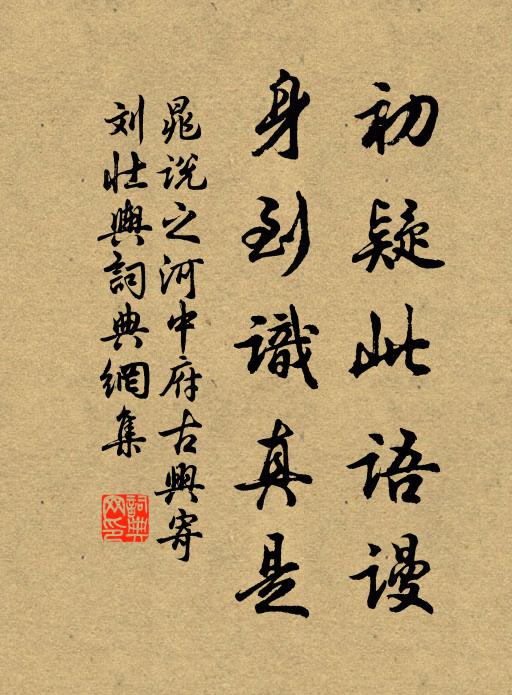 初疑此语谩
身到識真是
晁说之河中府古興寄
刘壮輿詞典網集
詞典
网印